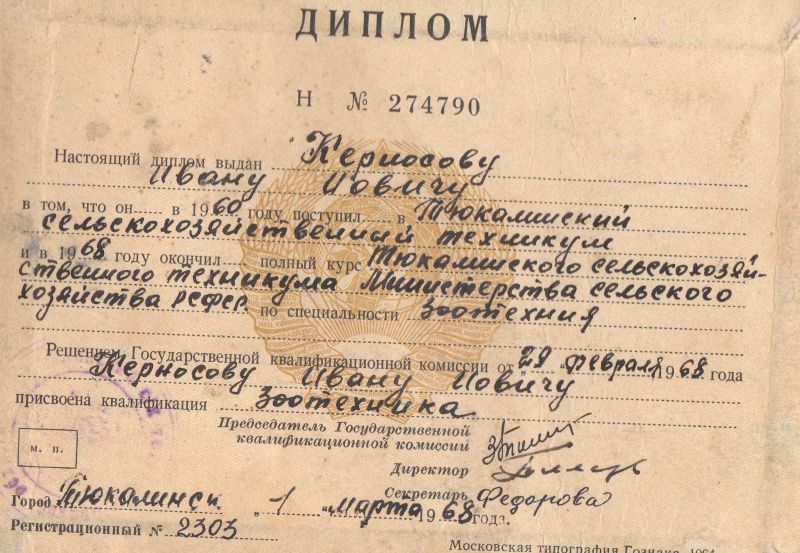 ДИПЛОМ
Н № 274790
Настоящий диплом выдан Керносову
Ивану Иовичу
в том, что он в 1960 году поступил в Тюкалинский
сельскохозяйственный техникум
и в 1968 году окончил полный курс Тюкалинского сельскохозяй-
ственного техникума Министерства сельского
хозяйства РСФСР по специальности Зоотехния
Решением Государственной квалификационной комиссии от 29 февраля 1968 года
Керносову Ивану Иовичу
присвоена квалификация Зоотехника
Председатель Государственной
квалификационной комиссии
м. п.
Директор
Секретарь Федорова
Город Тюкалинск „1 “ марта 1968 года.
Регистрационный № 2303
Московская типография Гознака. 1964.